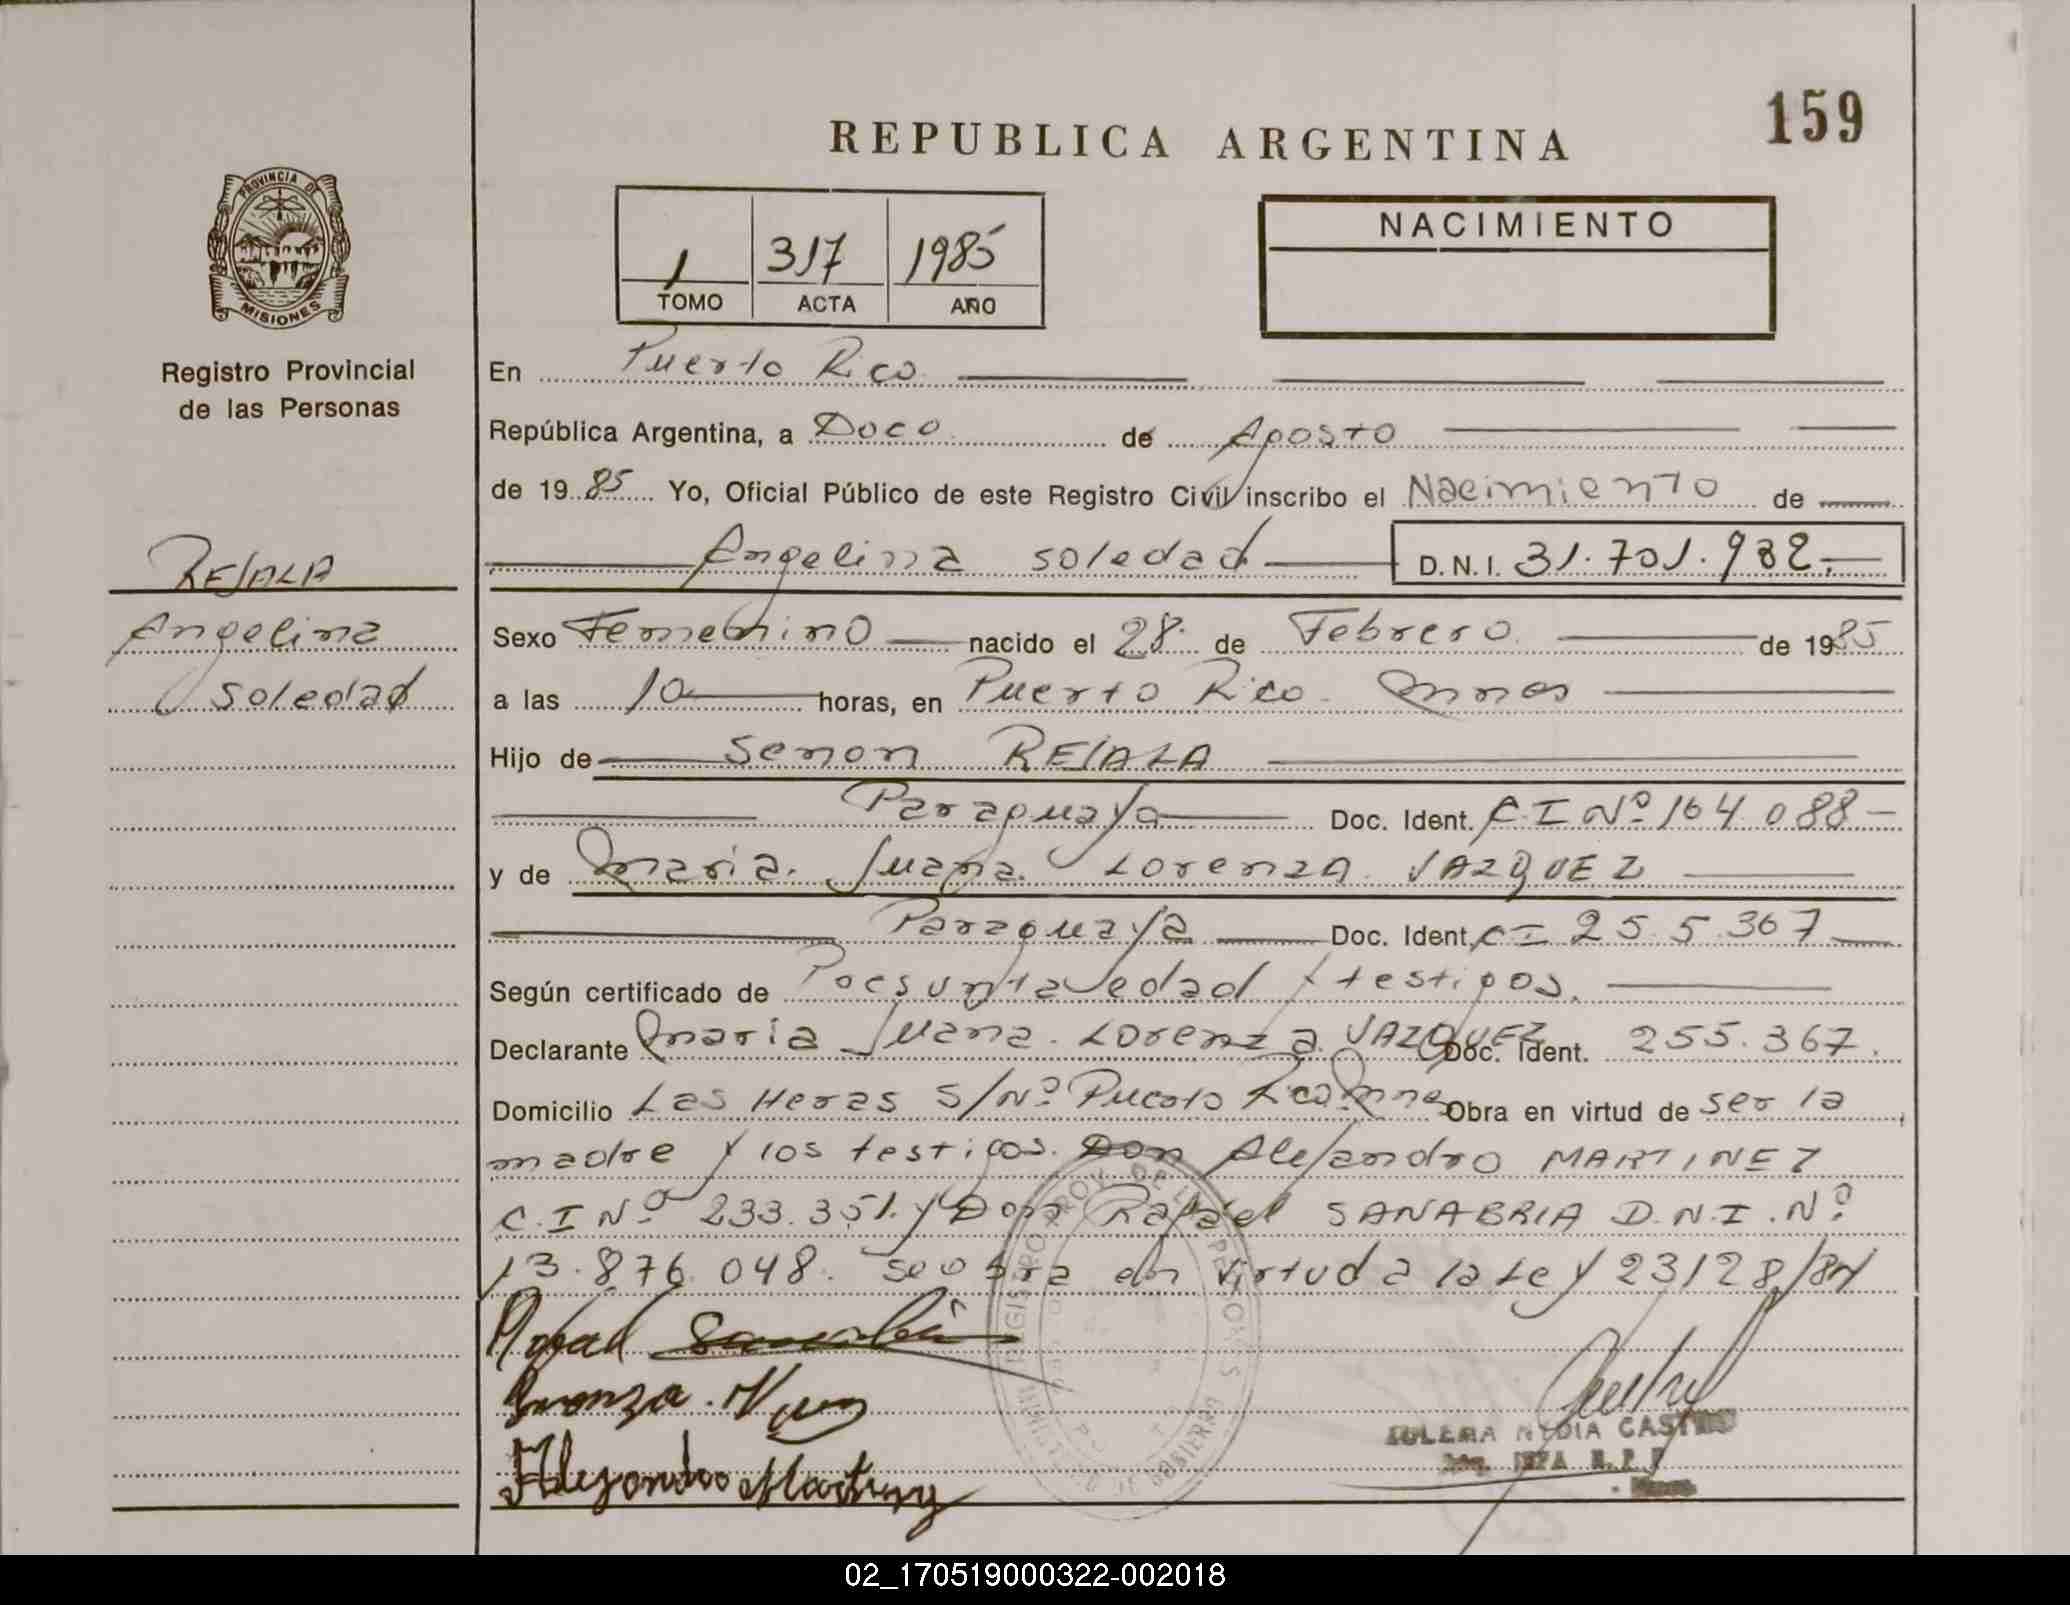 159
REPUBLICA ARGENTINA
PROVINCIA DE
MISIONES
Registro Provincial
de las Personas
1 317 1985
TOMO ACTA AÑO
NACIMIENTO
En Puerto Rico
República Argentina, a Doce de Agosto
de 1985 Yo, Oficial Público de este Registro Civil inscribo el Nacimiento de
REJALA
Angelina Soledad D.N.I. 31.701.982
Angelina
Soledad
Sexo Femenino nacido el 28 de Febrero de 1985
a las 10 horas, en Puerto Rico Mnes
Hijo de Senon REJALA
Paraguaya Doc. Ident. C I Nº 164 088
y de Maria Juana Lorenza VAZQUEZ
Paraguaya Doc. Ident. CI 255.367
Según certificado de edad y testigos.
Declarante Maria Juana Lorenza VAZQUEZ Doc. Ident. 255.367
Domicilio Las Heras S/Nº Puerto Rico Mnes Obra en virtud de ser la
madre y los testigos. Don Alejandro MARTINEZ
C.I Nº 233.351. y Don Rafael SANABRIA D.N.I. Nº
13.876.048. se obra en virtud a la Ley 23128/84
Rafael Sanabria
Alejandro Martinez
REGISTRO PROV. DE LAS PERSONAS
MINISTERIO DE GOBIERNO
NYDIA CASTRO
02_170519000322-002018